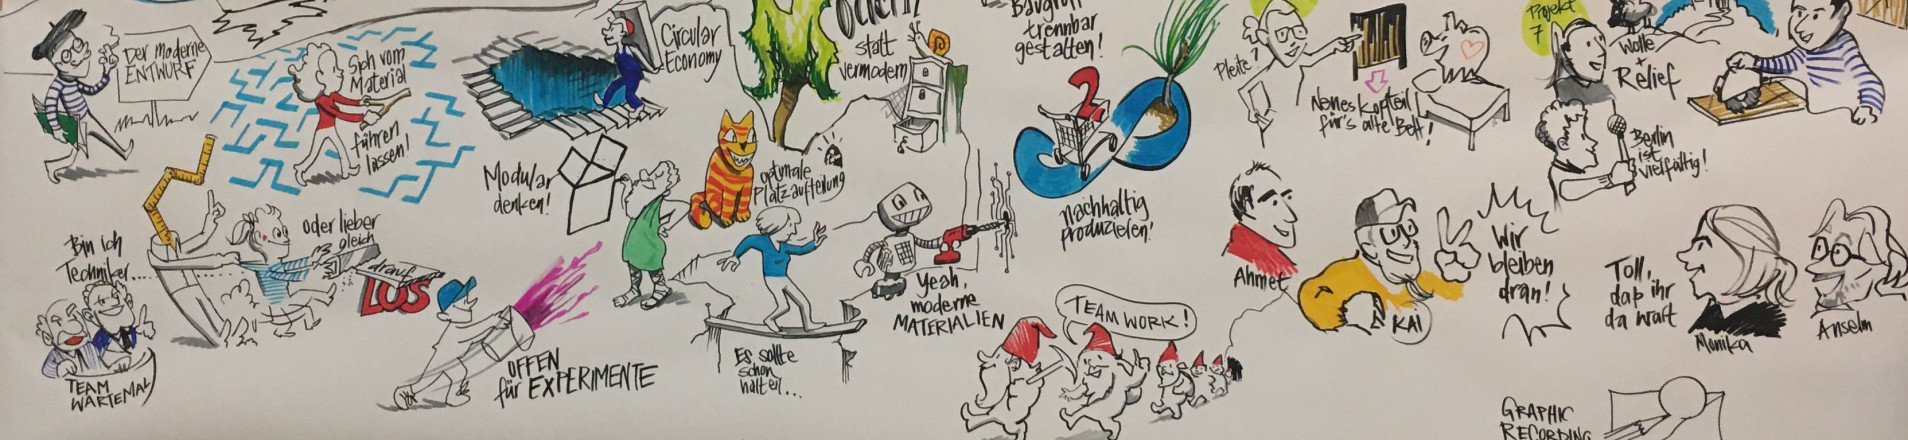 Der moderne
ENTWURF
Sich vom
Material
führen
lassen!
Circular
Economy
statt
vermodern
Baugruppen
trennbar
gestalten!
2
Pleite?
Neues Kopfteil
für's alte Bett!
Projekt
7
Wolle
+
Relief
Berlin
ist
vielfältig!
Modular
denken!
optimale
Platzaufteilung
nachhaltig
produzieren!
Bin ich
Techniker...
oder lieber
gleich
drauf
LOS
TEAM
WARTEMAL
OFFEN
für EXPERIMENTE
Es sollte
schon
halten...
Yeah,
moderne
MATERIALIEN
TEAM WORK!
Ahmet
KAI
Wir
bleiben
dran!
Toll,
daß ihr
da wart
Monika
Anselm
GRAPHIC
RECORDING